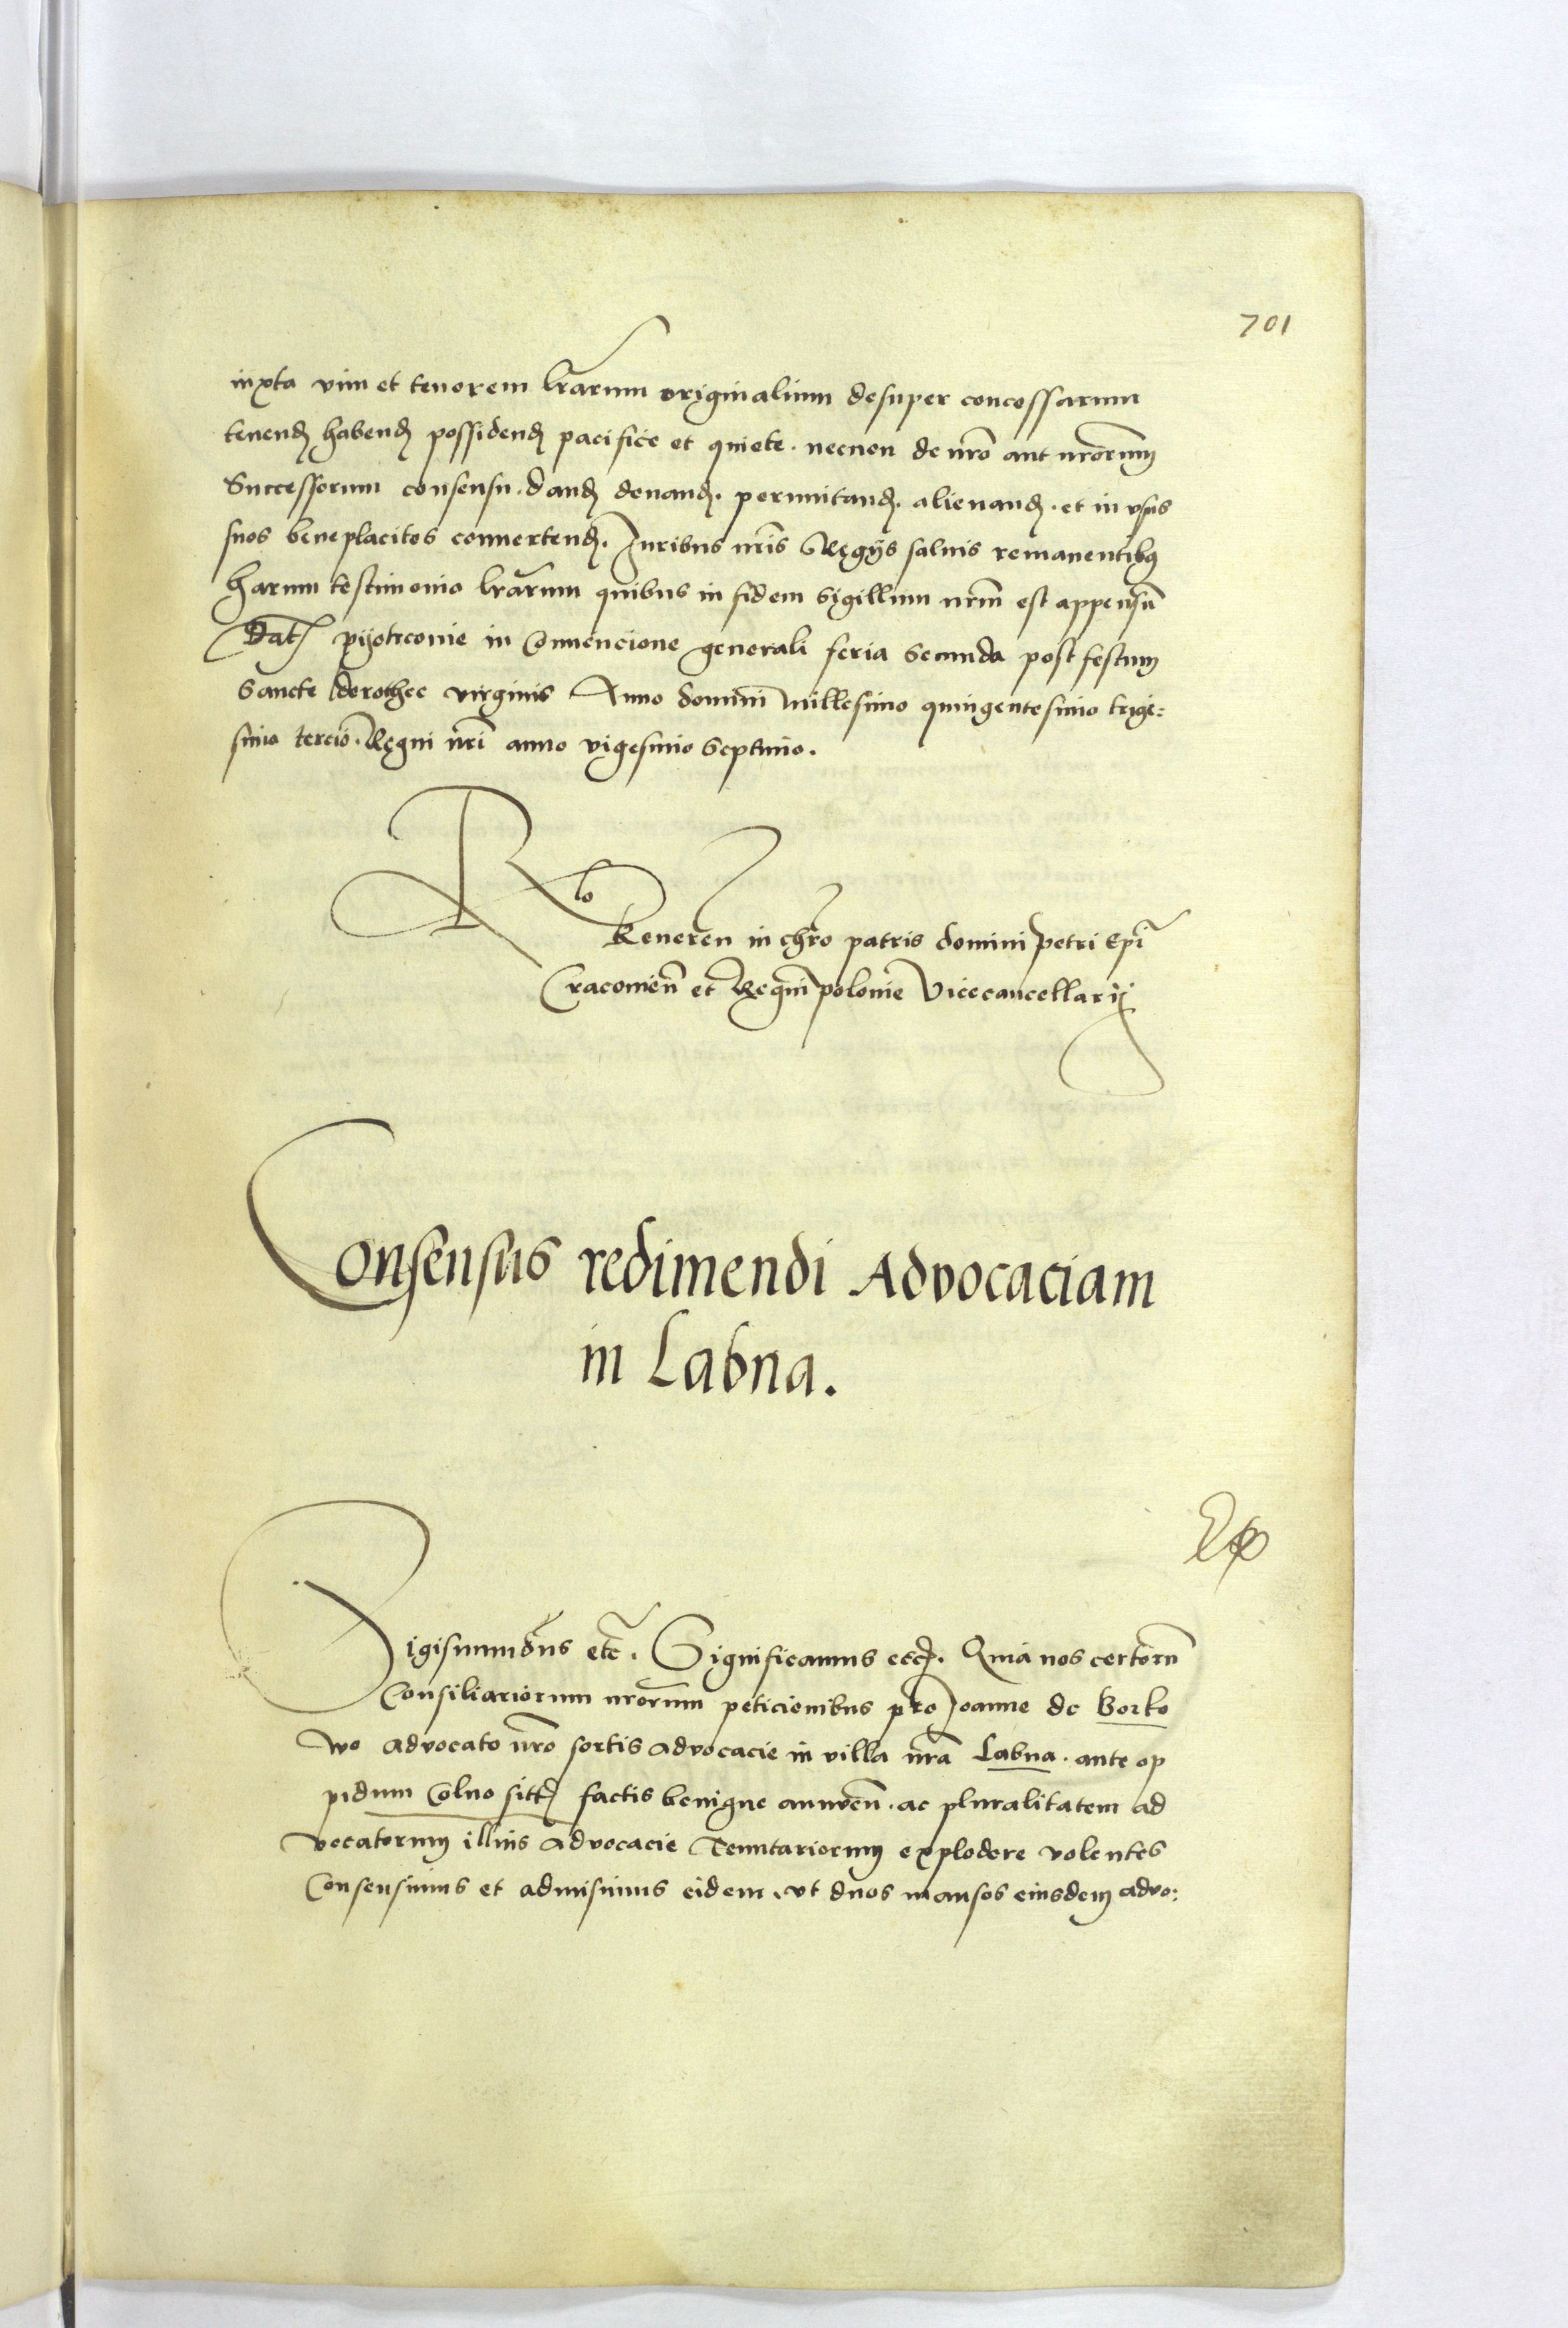 701
iuxta vim et tenorem lrarum originalium desuper concessarum
tenend habend possidend pacifice et quiete. necnon de nro aut nrorum
Successorum consensu. dand donand. permutand. alienand. et in vsus
suos beneplacitos conuertend. Juribus nris Regijs saluis remanentibus
harum testimonio lrarum quibus in fidem Sigillum nrm est appensu
Dat pijotrconie in Conuencione generali feria Secunda post festum
Sancte dorothee virginis Anno domini Millesimo quingentesimo trige:
simo tercio. Regni nri anno vigesimo Septimo.
Rlo
Reueren in chro patris domini petri Epi
Cracouien et Regni polonie Vicecancellarij
Consensus redimendi Advocaciam
in Labna.
Sigismundus etc. Significamus etc. Quia nos certoru
Consiliariorum nrorum peticionibus pro Joanne de Borko
wo advocato nro sortis advocacie in villa nra Labna. ante op
pidum Colno sitt factis benigne annuen. ac pluralitatem ad
vocatorum illius advocacie Tenutariorum explodere volentes
Consensimus et admisimus eidem. vt duos mansos eiusdem advo: